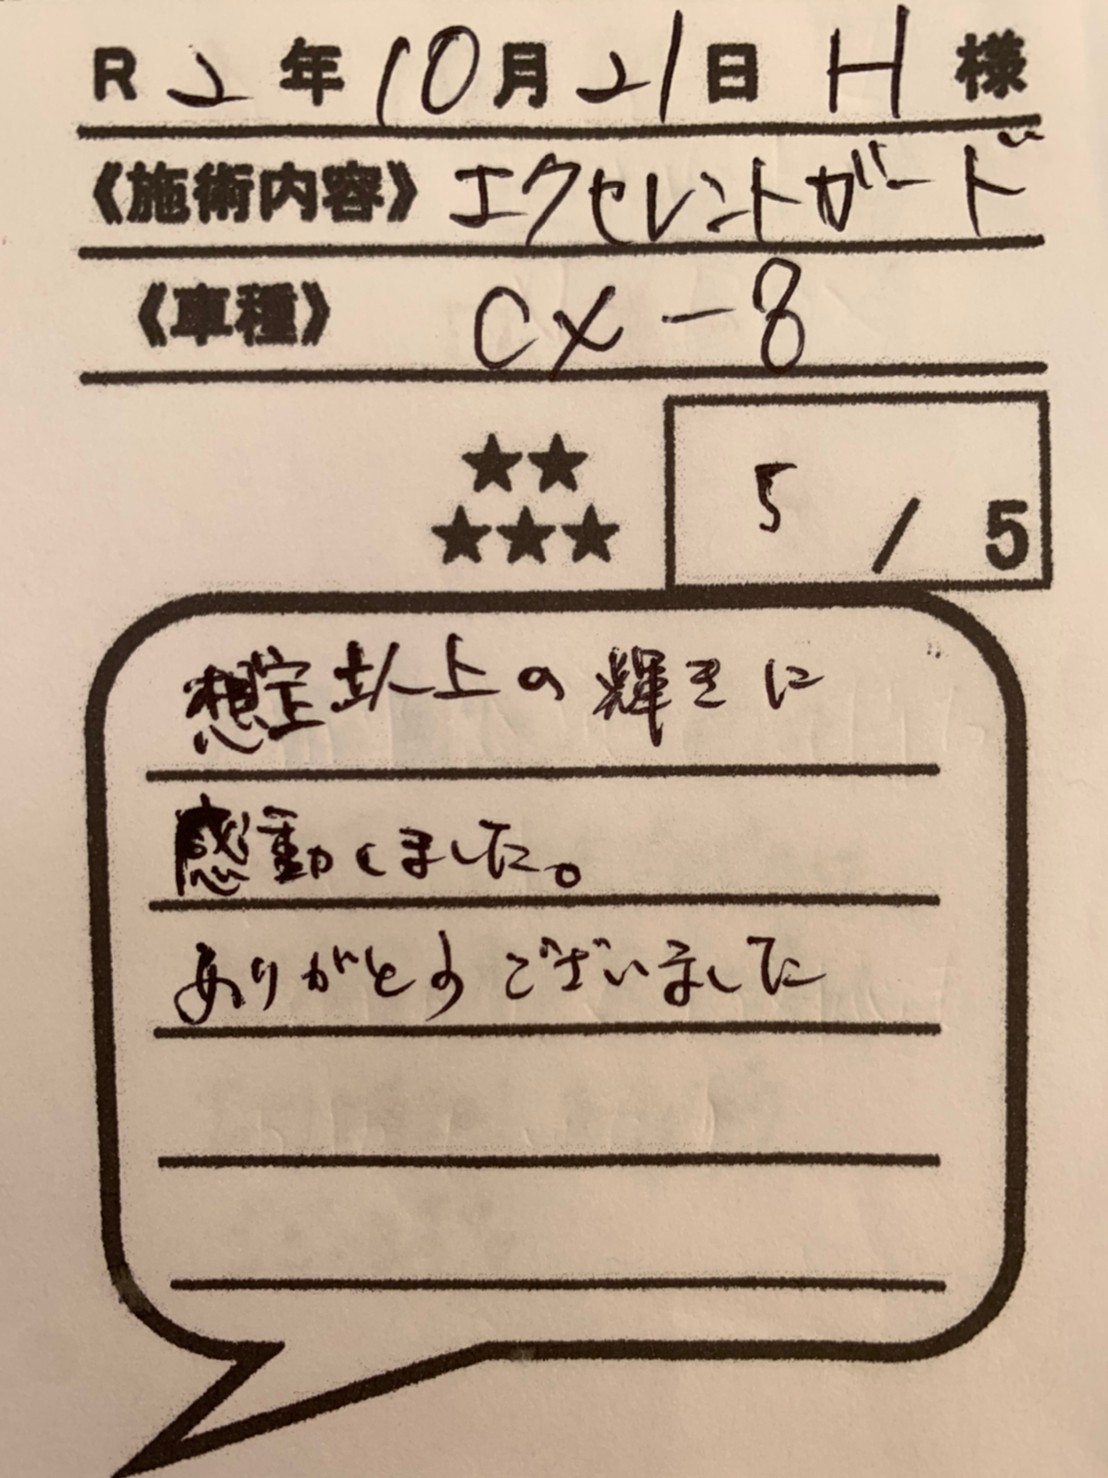 R2年10月21日 H様
《施術内容》エクセレントガード
《車種》 CX-8
★★
★★★
5/5
想定以上の輝きに
感動しました。
ありがとうございました